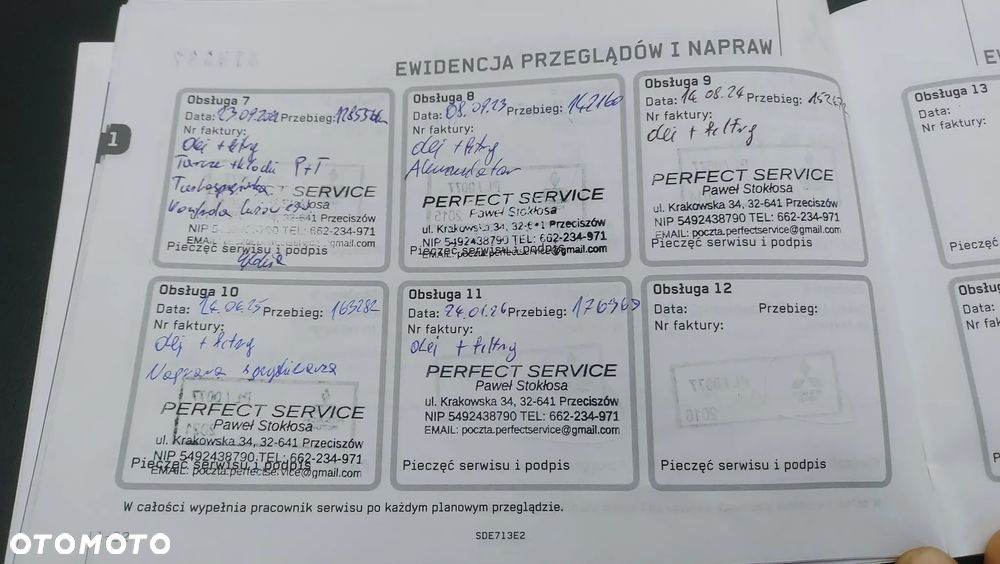 EWIDENCJA PRZEGLĄDÓW I NAPRAW
1
Obsługa 7
Data: Przebieg:
Nr faktury:
olej + filtry
Tarcze + klocki P+T
SERVICE
32-641 Przeciszów
TEL: 662-234-971
EMAIL: gmail.com
Pieczęć serwisu i podpis
Obsługa 8
Data: 08.09.23 Przebieg: 142160
Nr faktury:
olej + filtry
Akumulator
PERFECT SERVICE
Paweł Stokłosa
ul. Krakowska 34, 32-641 Przeciszów
NIP 5492438790 TEL: 662-234-971
Pieczęć serwisu i podpis
EMAIL: poczta.perfectservice@gmail.com
Obsługa 9
Data: 14.08.24 Przebieg:
Nr faktury:
olej + filtry
PERFECT SERVICE
Paweł Stokłosa
ul. Krakowska 34, 32-641 Przeciszów
NIP 5492438790 TEL: 662-234-971
EMAIL: poczta.perfectservice@gmail.com
Pieczęć serwisu i podpis
Obsługa 10
Data: 24.06.25 Przebieg: 163282
Nr faktury:
olej + filtry
Naprawa
PERFECT SERVICE
Paweł Stokłosa
ul. Krakowska 34, 32-641 Przeciszów
NIP 5492438790 TEL: 662-234-971
Pieczęć serwisu i podpis
EMAIL: poczta.perfectservice@gmail.com
Obsługa 11
Data: 24.01.26 Przebieg: 176363
Nr faktury:
olej + filtry
PERFECT SERVICE
Paweł Stokłosa
ul. Krakowska 34, 32-641 Przeciszów
NIP 5492438790 TEL: 662-234-971
EMAIL: poczta.perfectservice@gmail.com
Pieczęć serwisu i podpis
Obsługa 12
Data: Przebieg:
Nr faktury:
Pieczęć serwisu i podpis
W całości wypełnia pracownik serwisu po każdym planowym przeglądzie.
SDE713E2
Obsługa 13
Data:
Nr faktury:
Pieczęć
Data:
OTOMOTO